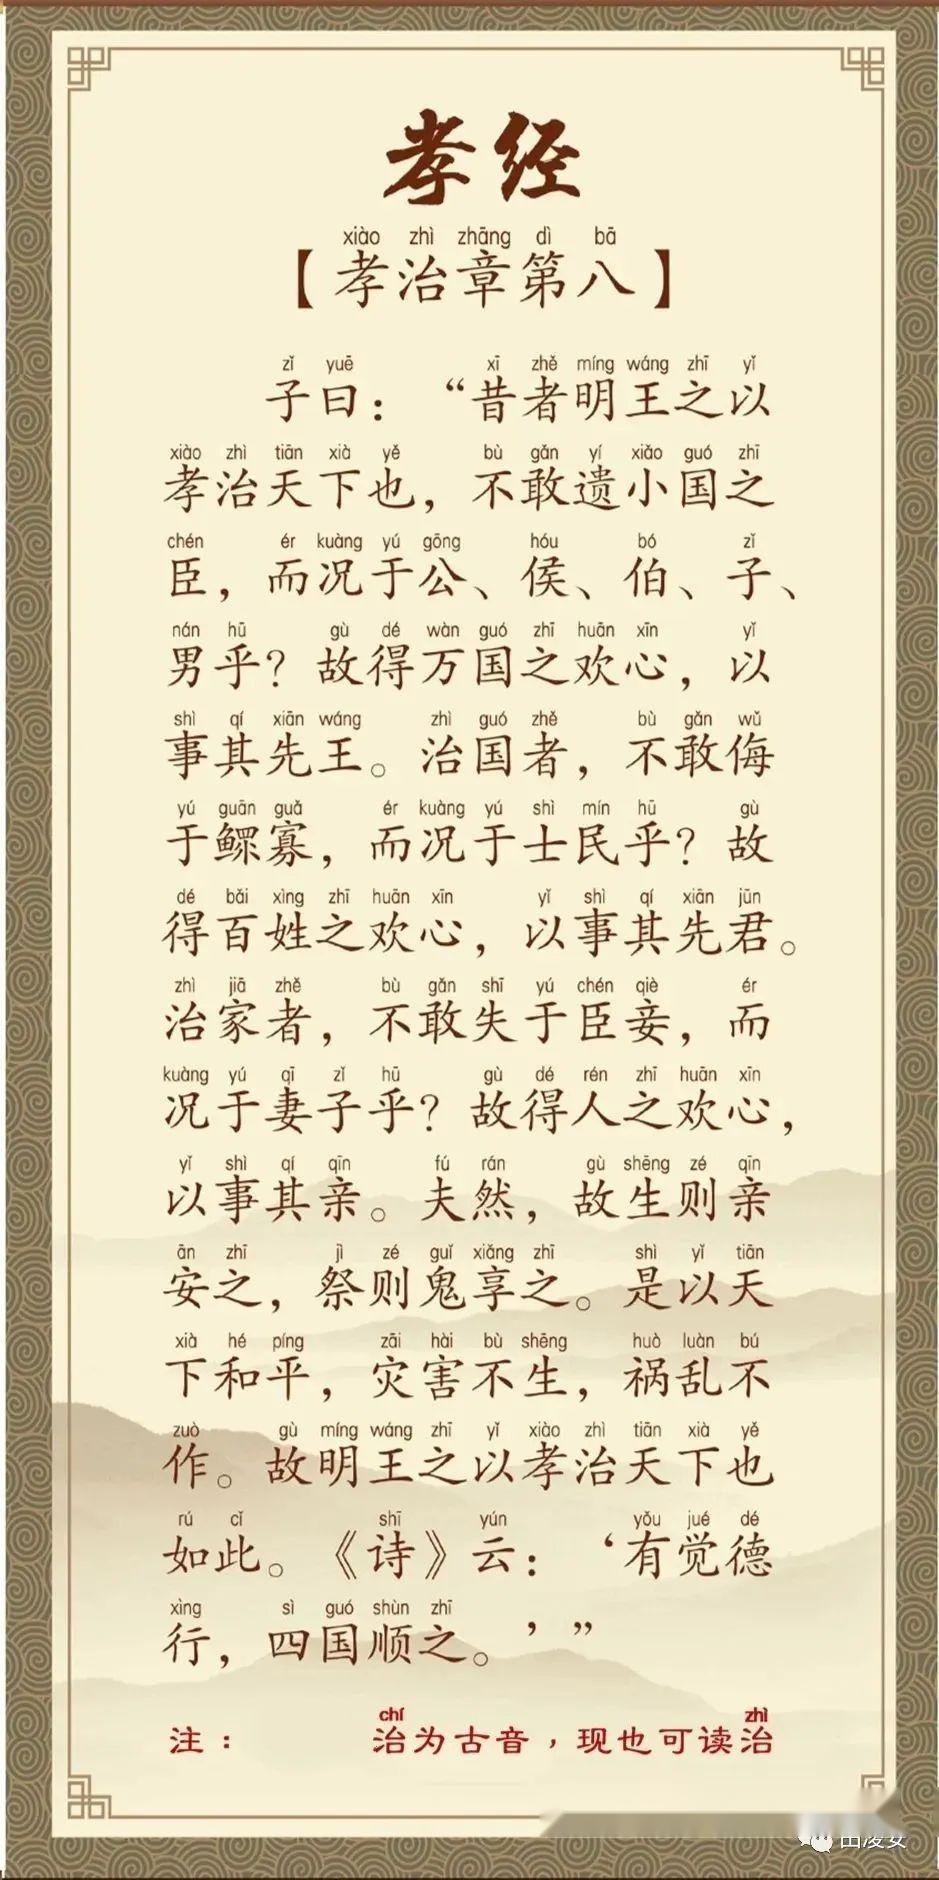 孝经
xiào zhì zhāng dì bā
【孝治章第八】
zǐ yuē xī zhě míng wáng zhī yǐ
子曰：“昔者明王之以
xiào zhì tiān xià yě bù gǎn yí xiǎo guó zhī
孝治天下也，不敢遗小国之
chén ér kuàng yú gōng hóu bó zǐ
臣，而况于公、侯、伯、子、
nán hū gù dé wàn guó zhī huān xīn yǐ
男乎？故得万国之欢心，以
shì qí xiān wáng zhì guó zhě bù gǎn wǔ
事其先王。治国者，不敢侮
yú guān guǎ ér kuàng yú shì mín hū gù
于鳏寡，而况于士民乎？故
dé bǎi xìng zhī huān xīn yǐ shì qí xiān jūn
得百姓之欢心，以事其先君。
zhì jiā zhě bù gǎn shī yú chén qiè ér
治家者，不敢失于臣妾，而
kuàng yú qī zǐ hū gù dé rén zhī huān xīn
况于妻子乎？故得人之欢心，
yǐ shì qí qīn fú rán gù shēng zé qīn
以事其亲。夫然，故生则亲
ān zhī jì zé guǐ xiǎng zhī shì yǐ tiān
安之，祭则鬼享之。是以天
xià hé píng zāi hài bù shēng huò luàn bú
下和平，灾害不生，祸乱不
zuò gù míng wáng zhī yǐ xiào zhì tiān xià yě
作。故明王之以孝治天下也
rú cǐ shī yún yǒu jué dé
如此。《诗》云：‘有觉德
xìng sì guó shùn zhī
行，四国顺之。’”
chí zhì
注： 治为古音，现也可读治